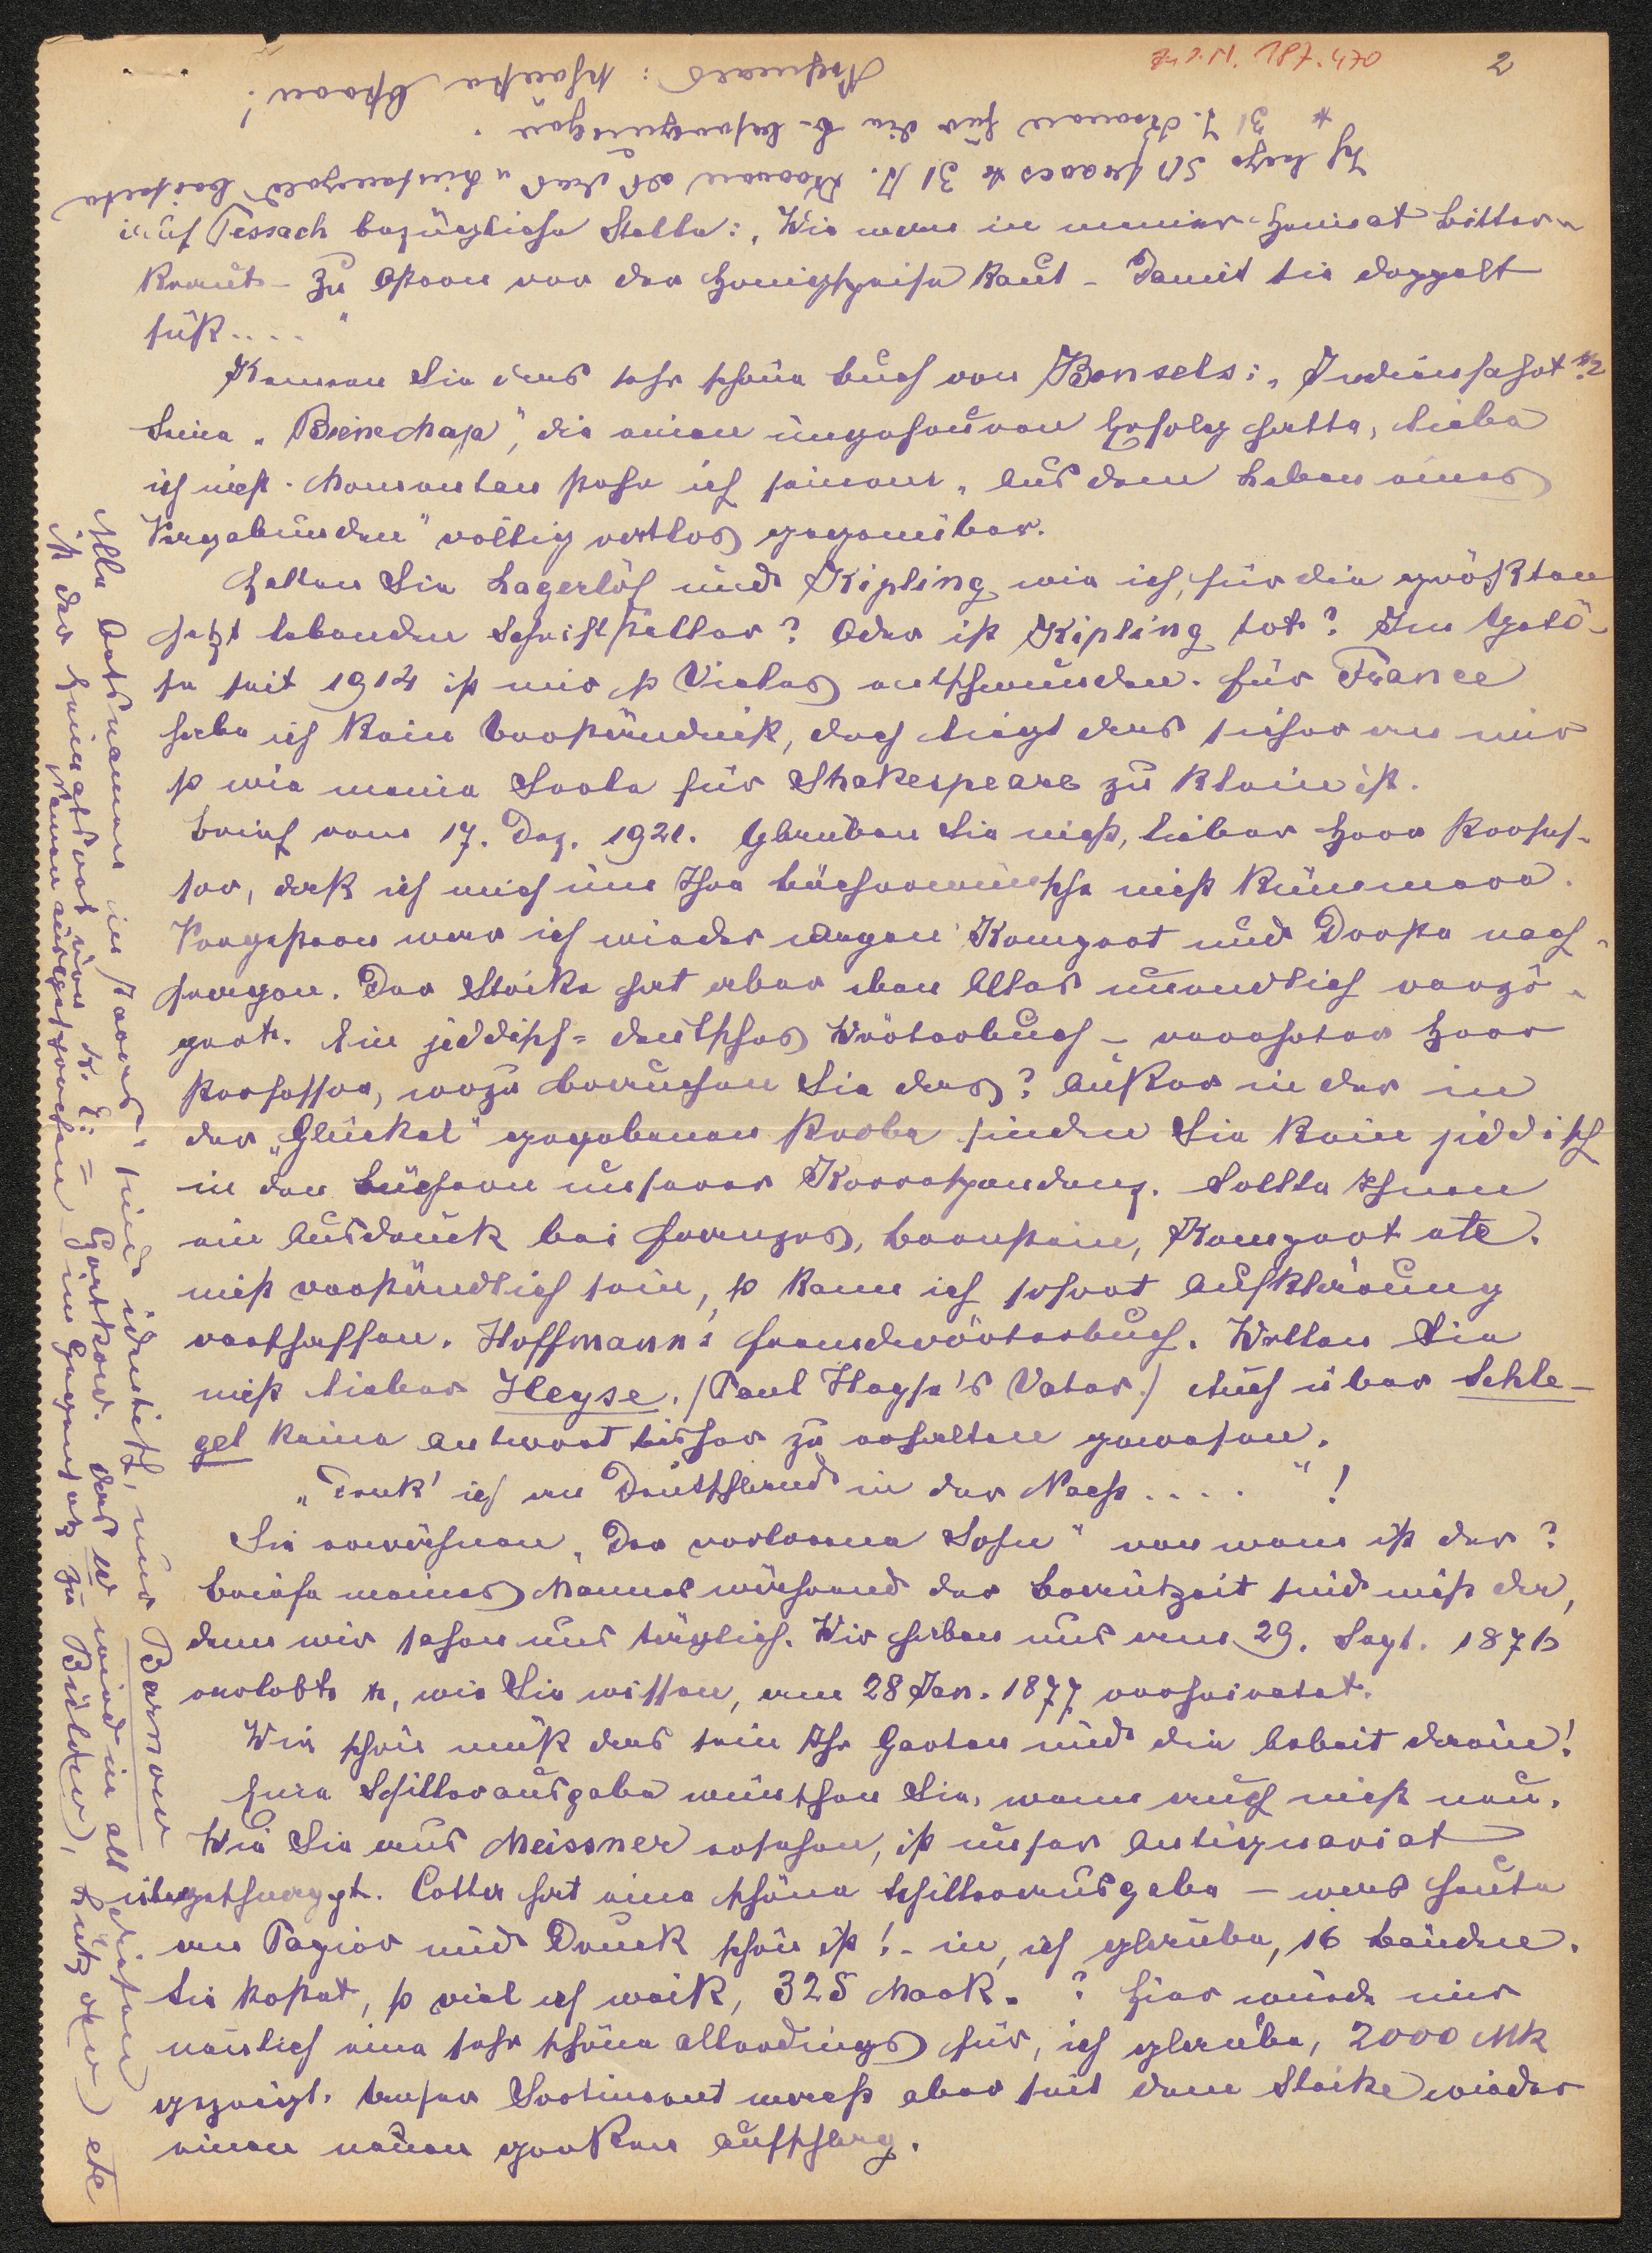 Zu I.N. 187.470
2
Nochmals: schönste Ostern!
* 31 J. Kronen für die B-besorgungen.
Ich lege 50 francs & 31 J. Kronen als das u hinfangend bei
auf Pessach bezügliche Stelle: "Wie man in meiner Heimat Bitter-
kraut - zu Ostern vor der Honigspeise kaut - Damit sie doppelt
süß...."
Kennen Sie das sehr schöne Buch von Bonsels: "Indienfahrt"?
Seine "Biene Maja", die einen ungeheuren Erfolg hatte, liebe
ich nicht. Momentan stehe ich seinem "Aus dem Leben eines
Vagabunden" völlig ratlos gegenüber.
Halten Sie Lagerlöf und Kipling, wie ich, für die größten
jetzt lebenden Schriftsteller? Oder ist Kipling tot? Im Getö-
se seit 1914 ist mir so Vieles entschwunden. Für France
habe ich kein Verständnis, doch liegt das sicher an mir
so wie meine Seele für Shakespeare zu klein ist.
Brief vom 17. Dez. 1921. Glauben Sie nicht, lieber Herr Profes-
sor, daß ich mich um Ihre Bücherwünsche nicht kümmere.
Vorgestern war ich wieder wegen Kompert und Dropa nach-
fragen. Der Streike hat aber eben Alles unendlich verzö-
gert. Ein jiddisch-deutsches Wörterbuch - verehrter Herr
Professor, wozu brauchen Sie das? Außer in der in
der "Glückel" gegebenen Probe finden Sie kein jiddisch
in den Büchern unserer Korrespondenz. Sollte Ihnen
ein Ausdruck bei Franzos, Bernstein, Kompert etc.
nicht verständlich sein, so kann ich sofort Aufklärung
verschaffen. Hoffmann's Fremdwörterbuch. Wollen Sie
nicht lieber Heyse. (Paul Heyse's Vater.) Auch über Schle-
gel keine Antwort bisher zu erhalten gewesen.
"Denk' ich an Deutschland in der Nacht . . . ." !
Sie erwähnen "Der verlorene Sohn" von wem ist der?
Briefe meines Mannes während der Brautzeit sind nicht da,
denn wir sahen uns täglich. Wir haben uns am 29. Sept. 1876
verlobt &, wie Sie wissen, am 28 Jan. 1877 verheiratet.
Wie schön muß das sein Ihr Garten und die Arbeit darin!
Eine Schillerausgabe wünschen Sie, wenn auch nicht neu.
Wie Sie aus Meissner ersehen, ist unser Antiquariat
übergeschnappt. Cotta hat eine schöne Schillerausgabe - was heute
an Papier und Druck schön ist! - in, ich glaube, 16 Bänden.
Sie kostet, so viel ich weiß, 325 Mark. ? Hier wurde mir
neulich eine sehr schöne allerdings für, ich glaube, 2000 Mk
gezeigt. Unser Sortiment macht aber seit dem Streike wieder
einen neuen großen Aufschlag.
Alle Ortsnamen im sind identisch, nur Barnow
ist der Heimatsort von K. E. = Czortkow. Das w wird in all diesen
Namen ausgesprochen (im Gegensatz zu Bülow), Lützow) etc